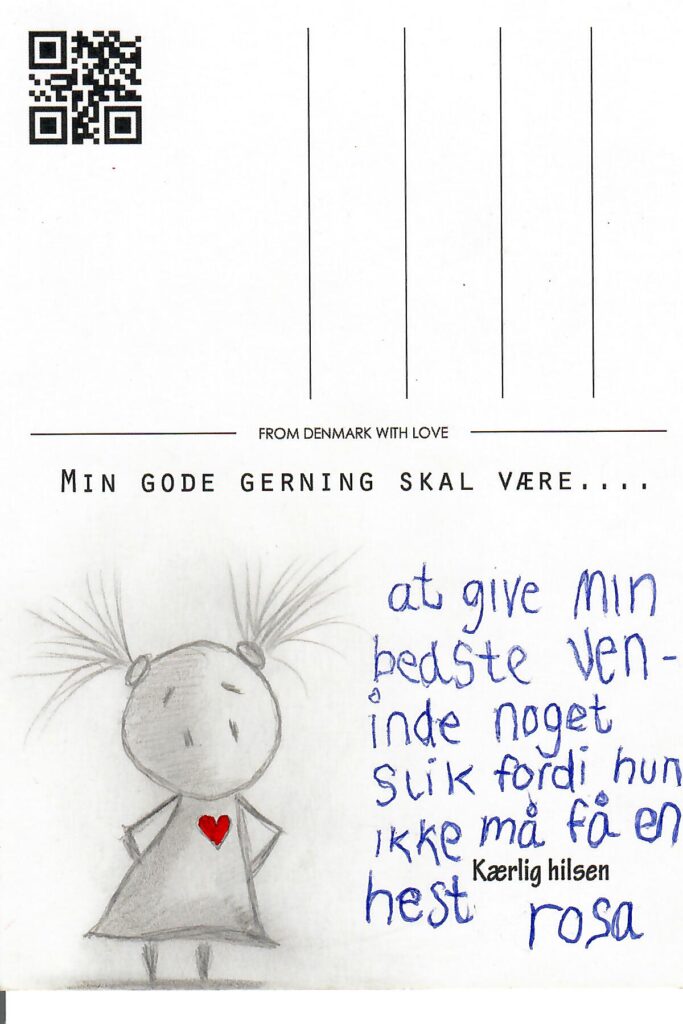 FROM DENMARK WITH LOVE
MIN GODE GERNING SKAL VÆRE....
at give min
bedste ven-
inde noget
slik fordi hun
ikke må få en
hest
Kærlig hilsen
rosa